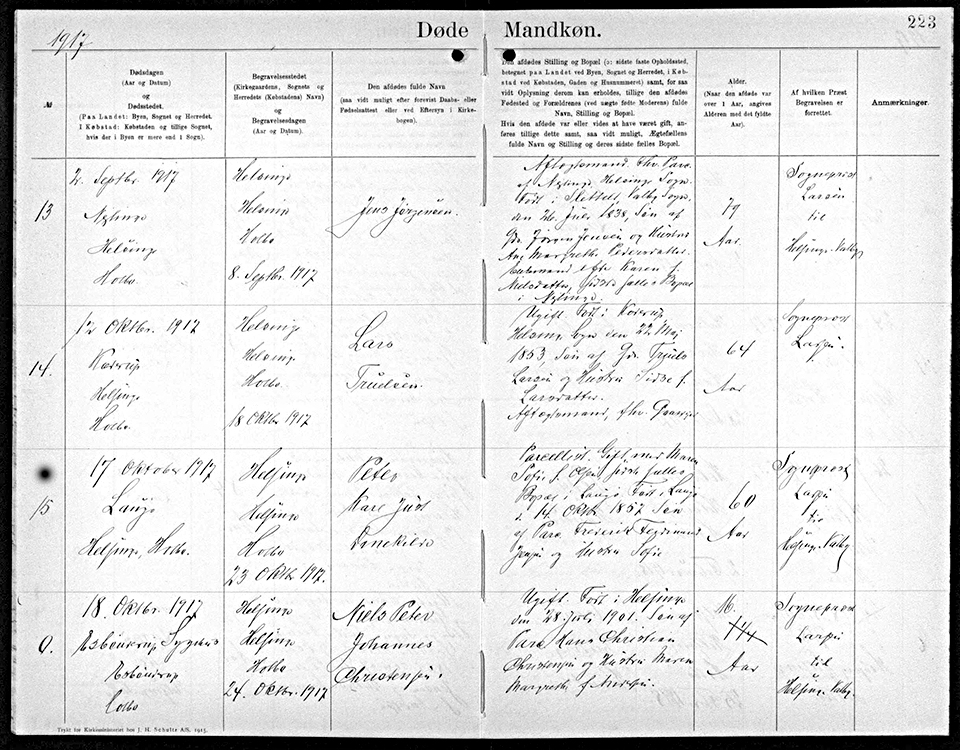 223
1917
Døde Mandkøn.
№
Dødsdagen
(Aar og Datum)
og
Dødsstedet.
(Paa Landet: Byen, Sognet og Herredet.
I Købstad: Købstaden og tillige Sognet,
hvis der i Byen er mere end 1 Sogn).
Begravelsesstedet
(Kirkegaardens, Sognets og
Herredets (Købstadens) Navn)
og
Begravelsesdagen
(Aar og Datum).
Den afdødes fulde Navn
(saa vidt muligt efter forevist Daabs- eller
Fødselsattest eller ved Eftersyn i Kirke-
bogen).
Den afdødes Stilling og Bopæl (o: sidste faste Opholdssted,
betegnet paa Landet ved Byen, Sognet og Herredet, i Køb-
stad ved Købstaden, Gaden og Husnummeret) samt, for saa
vidt Oplysning derom kan erholdes, tillige den afdødes
Fødested og Forældrenes (ved uægte fødte Moderens) fulde
Navn, Stilling og Bopæl.
Hvis den afdøde var eller vides at have været gift, an-
føres tillige dette samt, saa vidt muligt, Ægtefællens
fulde Navn og Stilling og deres sidste fælles Bopæl.
Alder.
(Naar den afdøde var
over 1 Aar, angives
Alderen med det fyldte
Aar).
Af hvilken Præst
Begravelsen er
forrettet.
Anmærkninger.
13
2. Septbr. 1917
Helsinge
Holbo
Helsinge
Helsinge
Holbo
8. Septbr. 1917
Jens Jørgensen.
Aftægtsmand, fhv. Parc.
Helsinge Sogn.
Født i Valby Sogn,
den 26. Juli 1838, Søn af
Gdr. Jørgen Jensen og Hustru
Ane Margrethe Pedersdatter.
Enkemand efter Karen f.
Nielsdatter, sidste fælles Bopæl
79
Aar.
Sogneprest
Larsen
til
Helsinge-Valby
14.
12 Oktbr. 1917
Helsinge
Holbo
Helsinge
Helsinge
Holbo
18 Oktbr 1917
Lars
Truelsen.
Ugift. Født i
Helsinge Sogn den 22. Maj
1853, Søn af Gdr. Truels
Larsen og Hustru Sidse f.
Larsdatter.
Aftægtsmand, fhv. Gaardejer
64
Aar
Sogneprest
Larsen.
15
17 Oktober 1917
Laugø
Helsinge, Holbo.
Helsinge
Helsinge
Holbo
23 Oktb. 1917.
Peter
Parcellist. Gift med Maren
Sofie f. Olsen, sidste fælles
Bopæl i Laugø. Født i Laugø
d. 14. Oktb. 1857 Søn
af Parc. Frederik Ferdinand
Jensen og Hustru Sofie
60
Aar
Sogneprest
Larsen
til
Helsinge-Valby
0.
18. Oktbr. 1917
Esbønderup Sygehus
Esbønderup
Holbo
Helsinge
Helsinge
Holbo
24. Oktbr. 1917
Niels Peter
Johannes
Christensen.
Ugift. Født i Helsinge
den 28. Juli 1901. Søn af
Parc. Hans Christian
Christensen og Hustru Maren
Margrethe f.
16.
Aar
Sogneprest
Larsen
til
Helsinge-Valby.
Trykt for Kirkeministeriet hos J. H. Schultz A/S. 1915.